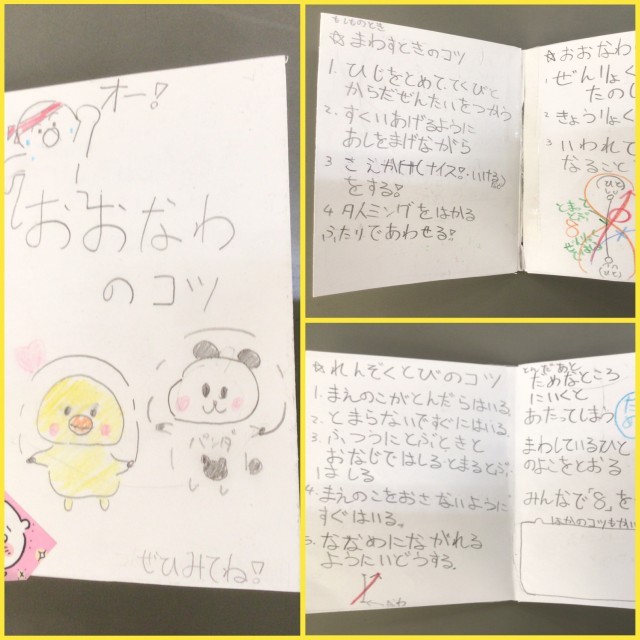 オー!
おおなわ
のコツ
パンダ
ぜひみてね!
もしものとき
☆まわすときのコツ
1. ひじをとめて、てくびと
からだぜんたいをつかう
2. すくいあげるように
あしをまげながら
3 こえかけ(ナイス!・いけるよ)
をする!
4 タイミングをはかる
ふたりであわせる!
☆おおなわ
1 ぜんりょく
たのし
2 きょうりょく
3 いわれて
なること
☆れんぞくとびのコツ
1. まえのこがとんだらはいる。
2. とまらないですぐにはいる。
3. ふつうにとぶときと
おなじではしる・とまるとぶ・
はしる
4. まえのこをおさないように
すぐはいる。
5. ななめにながれる
ようにいどうする。
なわ
とんだあと、
だめなところ
にいくと
あたってしまう
まわしているひと
のよこをとおる
みんなで「8」を
ほかのコツもかい